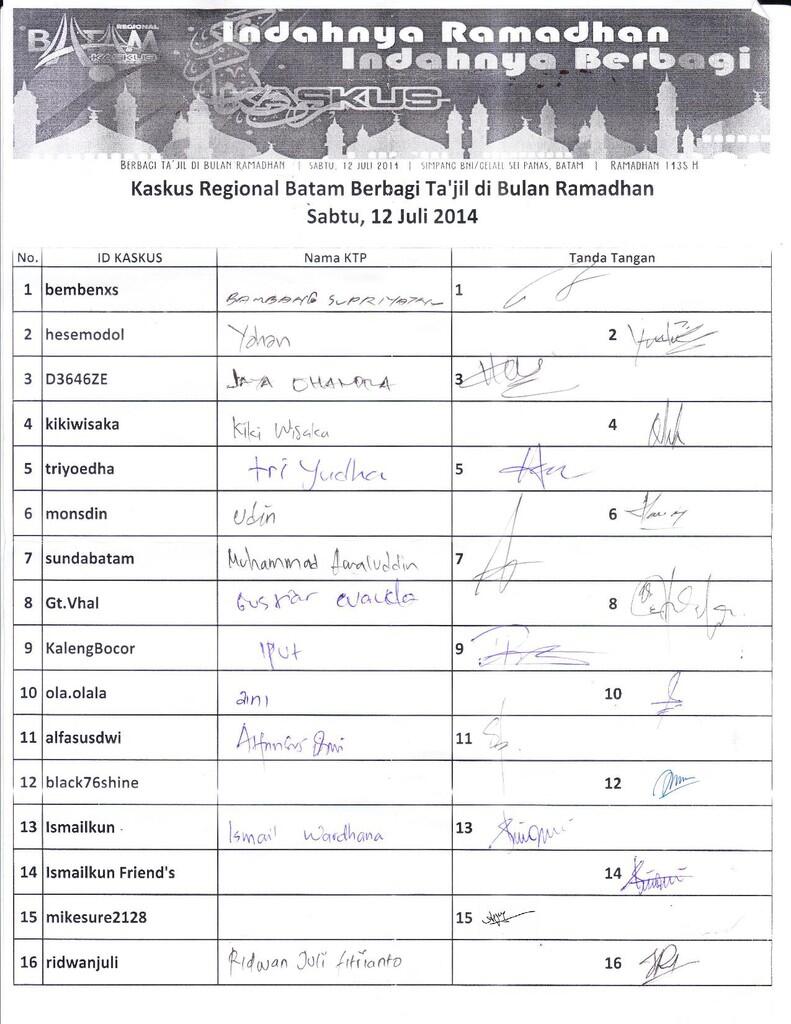 REGIONAL
BATAM
KASKUS
Indahnya Ramadhan
Indahnya Berbagi
KASKUS
BERBAGI TA'JIL DI BULAN RAMADHAN | SABTU, 12 JULI 2014 | SIMPANG BNI/GELAEL SEI PANAS, BATAM | RAMADHAN 1135 H
Kaskus Regional Batam Berbagi Ta'jil di Bulan Ramadhan
Sabtu, 12 Juli 2014
No. ID KASKUS Nama KTP Tanda Tangan
1 bembenxs BAMBANG SUPRIYATAN 1
2 hesemodol Yohan 2
3 D3646ZE JAYA CHANDRA 3
4 kikiwisaka Kiki Wisaka 4
5 triyoedha tri Yudha 5
6 monsdin Udin 6
7 sundabatam Muhammad 7
8 Gt.Vhal 8
9 KalengBocor IPUT 9
10 ola.olala aini 10
11 alfasusdwi Dwi 11
12 black76shine 12
13 Ismailkun Ismail Wardhana 13
14 Ismailkun Friend's 14
15 mikesure2128 15
16 ridwanjuli Ridwan Juli fitrianto 16